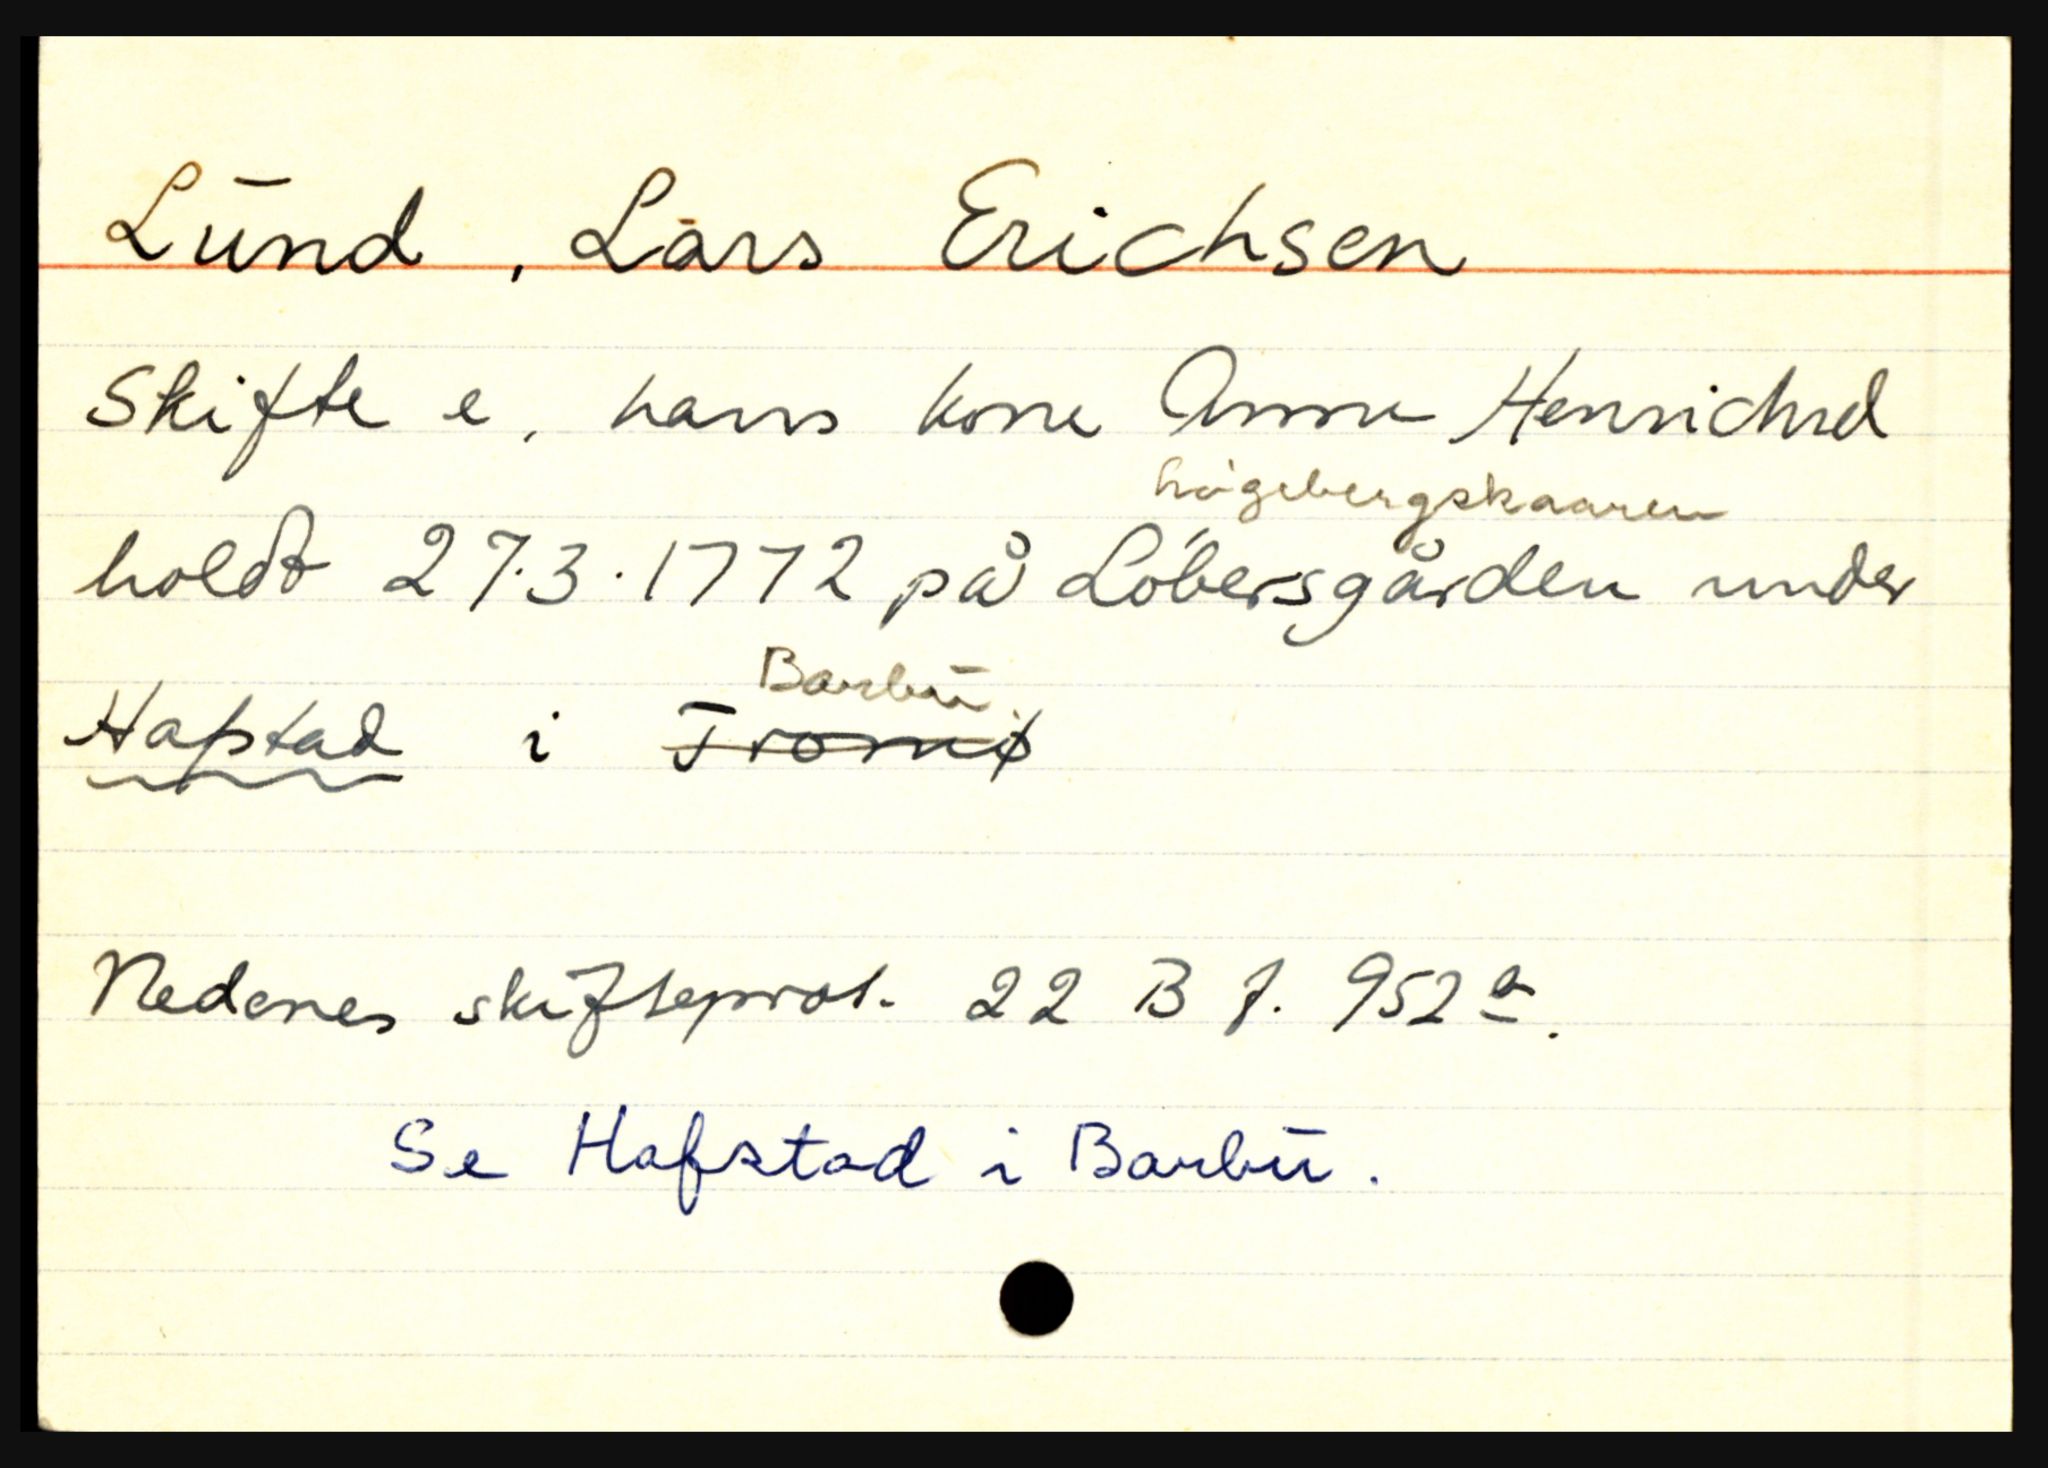 Lund, Lars Erichsen
Skifte e. hans kone Anne Henrichsd
høgebergskaaren
holdt 27.3.1772 på Løbersgården under
Barbu
Hafstad i Tromø
Nedenes skifteprot. 22 B f. 952 a.
Se Hafstad i Barbu.